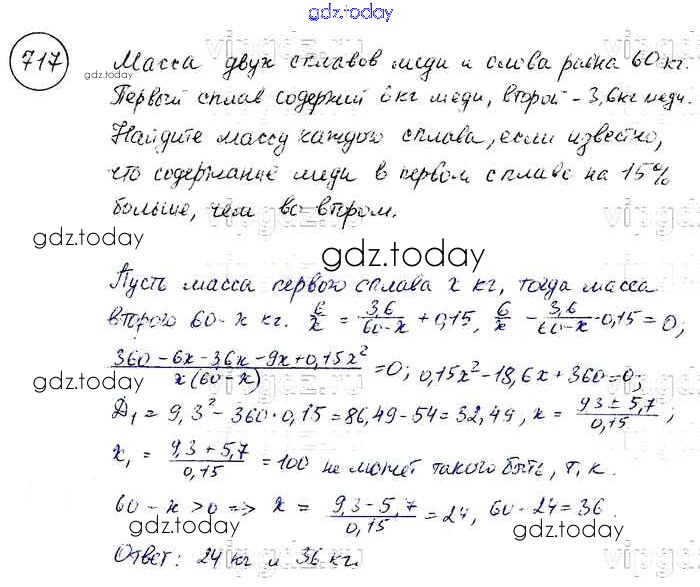 gdz.today
717
Масса двух сплавов меди и олова равна 60 кг.
gdz.today
Первый сплав содержит 6 кг меди, второй - 3,6 кг меди.
Найдите массу каждого сплава, если известно,
что содержание меди в первом сплаве на 15%
больше, чем во втором.
gdz.today
gdz.today
Пусть масса первого сплава x кг, тогда масса
второго 60-x кг. 6/x = 3,6/(60-x) + 0,15, 6/x - 3,6/(60-x) - 0,15 = 0;
(360 - 6x - 3,6x - 9x + 0,15x²)/(x(60-x)) = 0; 0,15x² - 18,6x + 360 = 0;
gdz.today
gdz.today
D₁ = 9,3² - 360·0,15 = 86,49 - 54 = 32,49, x = (9,3 ± 5,7)/0,15;
x₁ = (9,3 + 5,7)/0,15 = 100 не может такого быть, т.к.
60 - x > 0 => x = (9,3 - 5,7)/0,15 = 24, 60 - 24 = 36.
gdz.today
gdz.today
Ответ: 24 кг и 36 кг.
gdz.today